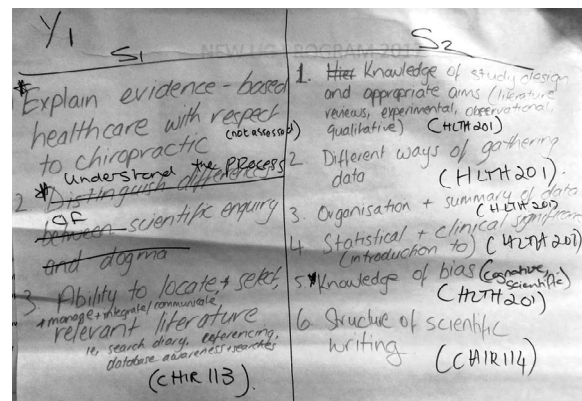 Y1
S1
* Explain evidence-based
healthcare with respect
to chiropractic (not assessed)
Understand the PROCESS
2 * Distinguish difference
OF
between scientific enquiry
and dogma
3. Ability to locate + select,
+ manage + integrate/communicate
relevant literature
ie, search diary, referencing,
database awareness + searches
(CHIR 113).
S2
1. Hier Knowledge of study design
and appropriate aims (literature
reviews, experimental, observational,
qualitative) (HLTH201)
2 Different ways of gathering
data (HLTH201).
3. Organisation + summary of data
(HLTH201)
4. Statistical + clinical significance
(introduction to) (HLTH 201)
5. * Knowledge of bias (cognative,
scientific)
(HLTH201)
6. Structure of scientific
writing (CHIR114)